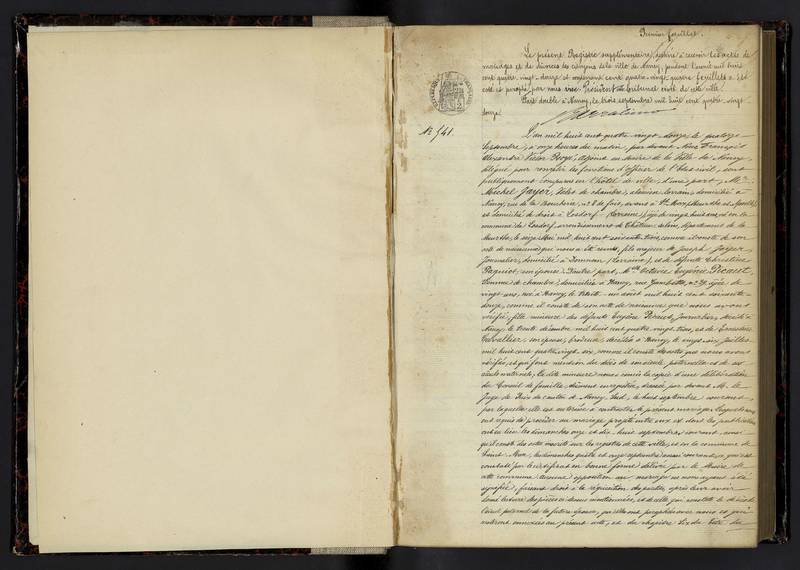 Premier feuillet.
Le présent Registre supplémentaire, destiné à recevoir les actes de
mariages et de divorces des citoyens de la ville de Nancy, pendant l'année mil huit
cent quatre-vingt-douze et contenant cent quatre-vingt-quatre feuillets a été
coté et paraphé par nous Président du tribunal civil de cette ville.
Fait double à Nancy, le trois septembre mil huit cent quatre-vingt-
douze.
N° 541.
L'an mil huit cent quatre vingt-douze, le
septembre, à onze heures du matin, par devant Nous François
Alexandre Victor Adjoint au Maire de la Ville de Nancy,
délégué pour remplir les fonctions d'officier de l'état-civil, sont
publiquement comparus en l'hôtel de ville, d'une part, Mr
Michel Jayer, Valet de chambre, alsacien-lorrain, domicilié à
Nancy, rue de la n° 8 de fait, avant à St Max (Meurthe et Moselle)
et domicilié de droit à Lostorf (Lorraine), âgé de vingt huit ans, né en la
commune de Lostorf, arrondissement de Château-Salins, département de la
Meurthe, le seize Mai mil huit cent soixante-trois, comme il conste de son
acte de naissance qui nous a été remis, fils majeur de Joseph Jayer
Journalier, domicilié à (Lorraine), et de défunte Christine
son épouse; D'autre part, Mlle Octavie Eugénie Picaut,
Femme de chambre, domiciliée à Nancy, rue Gambetta, n° âgée de
vingt ans, née à Nancy, le août mil huit cent soixante-
douze, comme il conste de son acte de naissance que nous avons
vérifié, fille mineure des défunts Eugène Picaut, Journalier, décédé à
Nancy, le trente décembre mil huit cent quatre-vingt-trois, et de
Cavallier, son épouse, brodeuse, décédée à Nancy, le vingt-six Juillet
mil huit cent quatre-vingt-six, comme il conste des actes que nous avons
vérifiés, et qui font mention du décès de ses aïeuls paternels et de ses
aïeuls maternels; La dite mineure nous a remis la copie d'une délibération
du Conseil de famille, dûment enregistrée, dressée par devant M. le
Juge de Paix du canton de Nancy, Sud, le huit septembre courant,
par laquelle elle est autorisée à contracter le présent mariage; Lesquels nous
ont requis de procéder au mariage projeté entre eux et dont les publications
ont eu lieu les dimanches onze et dix-huit septembre courant, ainsi
qu'il conste des actes inscrits sur les registres de cette ville, et en la commune de
Saint-Max, les dimanches quatre et onze septembre aussi courant, ce qui est
constaté par le certificat en bonne forme délivré par le Maire de
cette commune. Aucune opposition au mariage ne nous ayant été
signifiée, faisant droit à la réquisition des parties, après leur avoir
donné lecture des pièces ci-dessus mentionnées, et de celle qui constate le décès de
l'aïeul paternel de la future épouse, qu'elles ont paraphées avec nous et qui
resteront annexées au présent acte, et du chapitre six du titre du